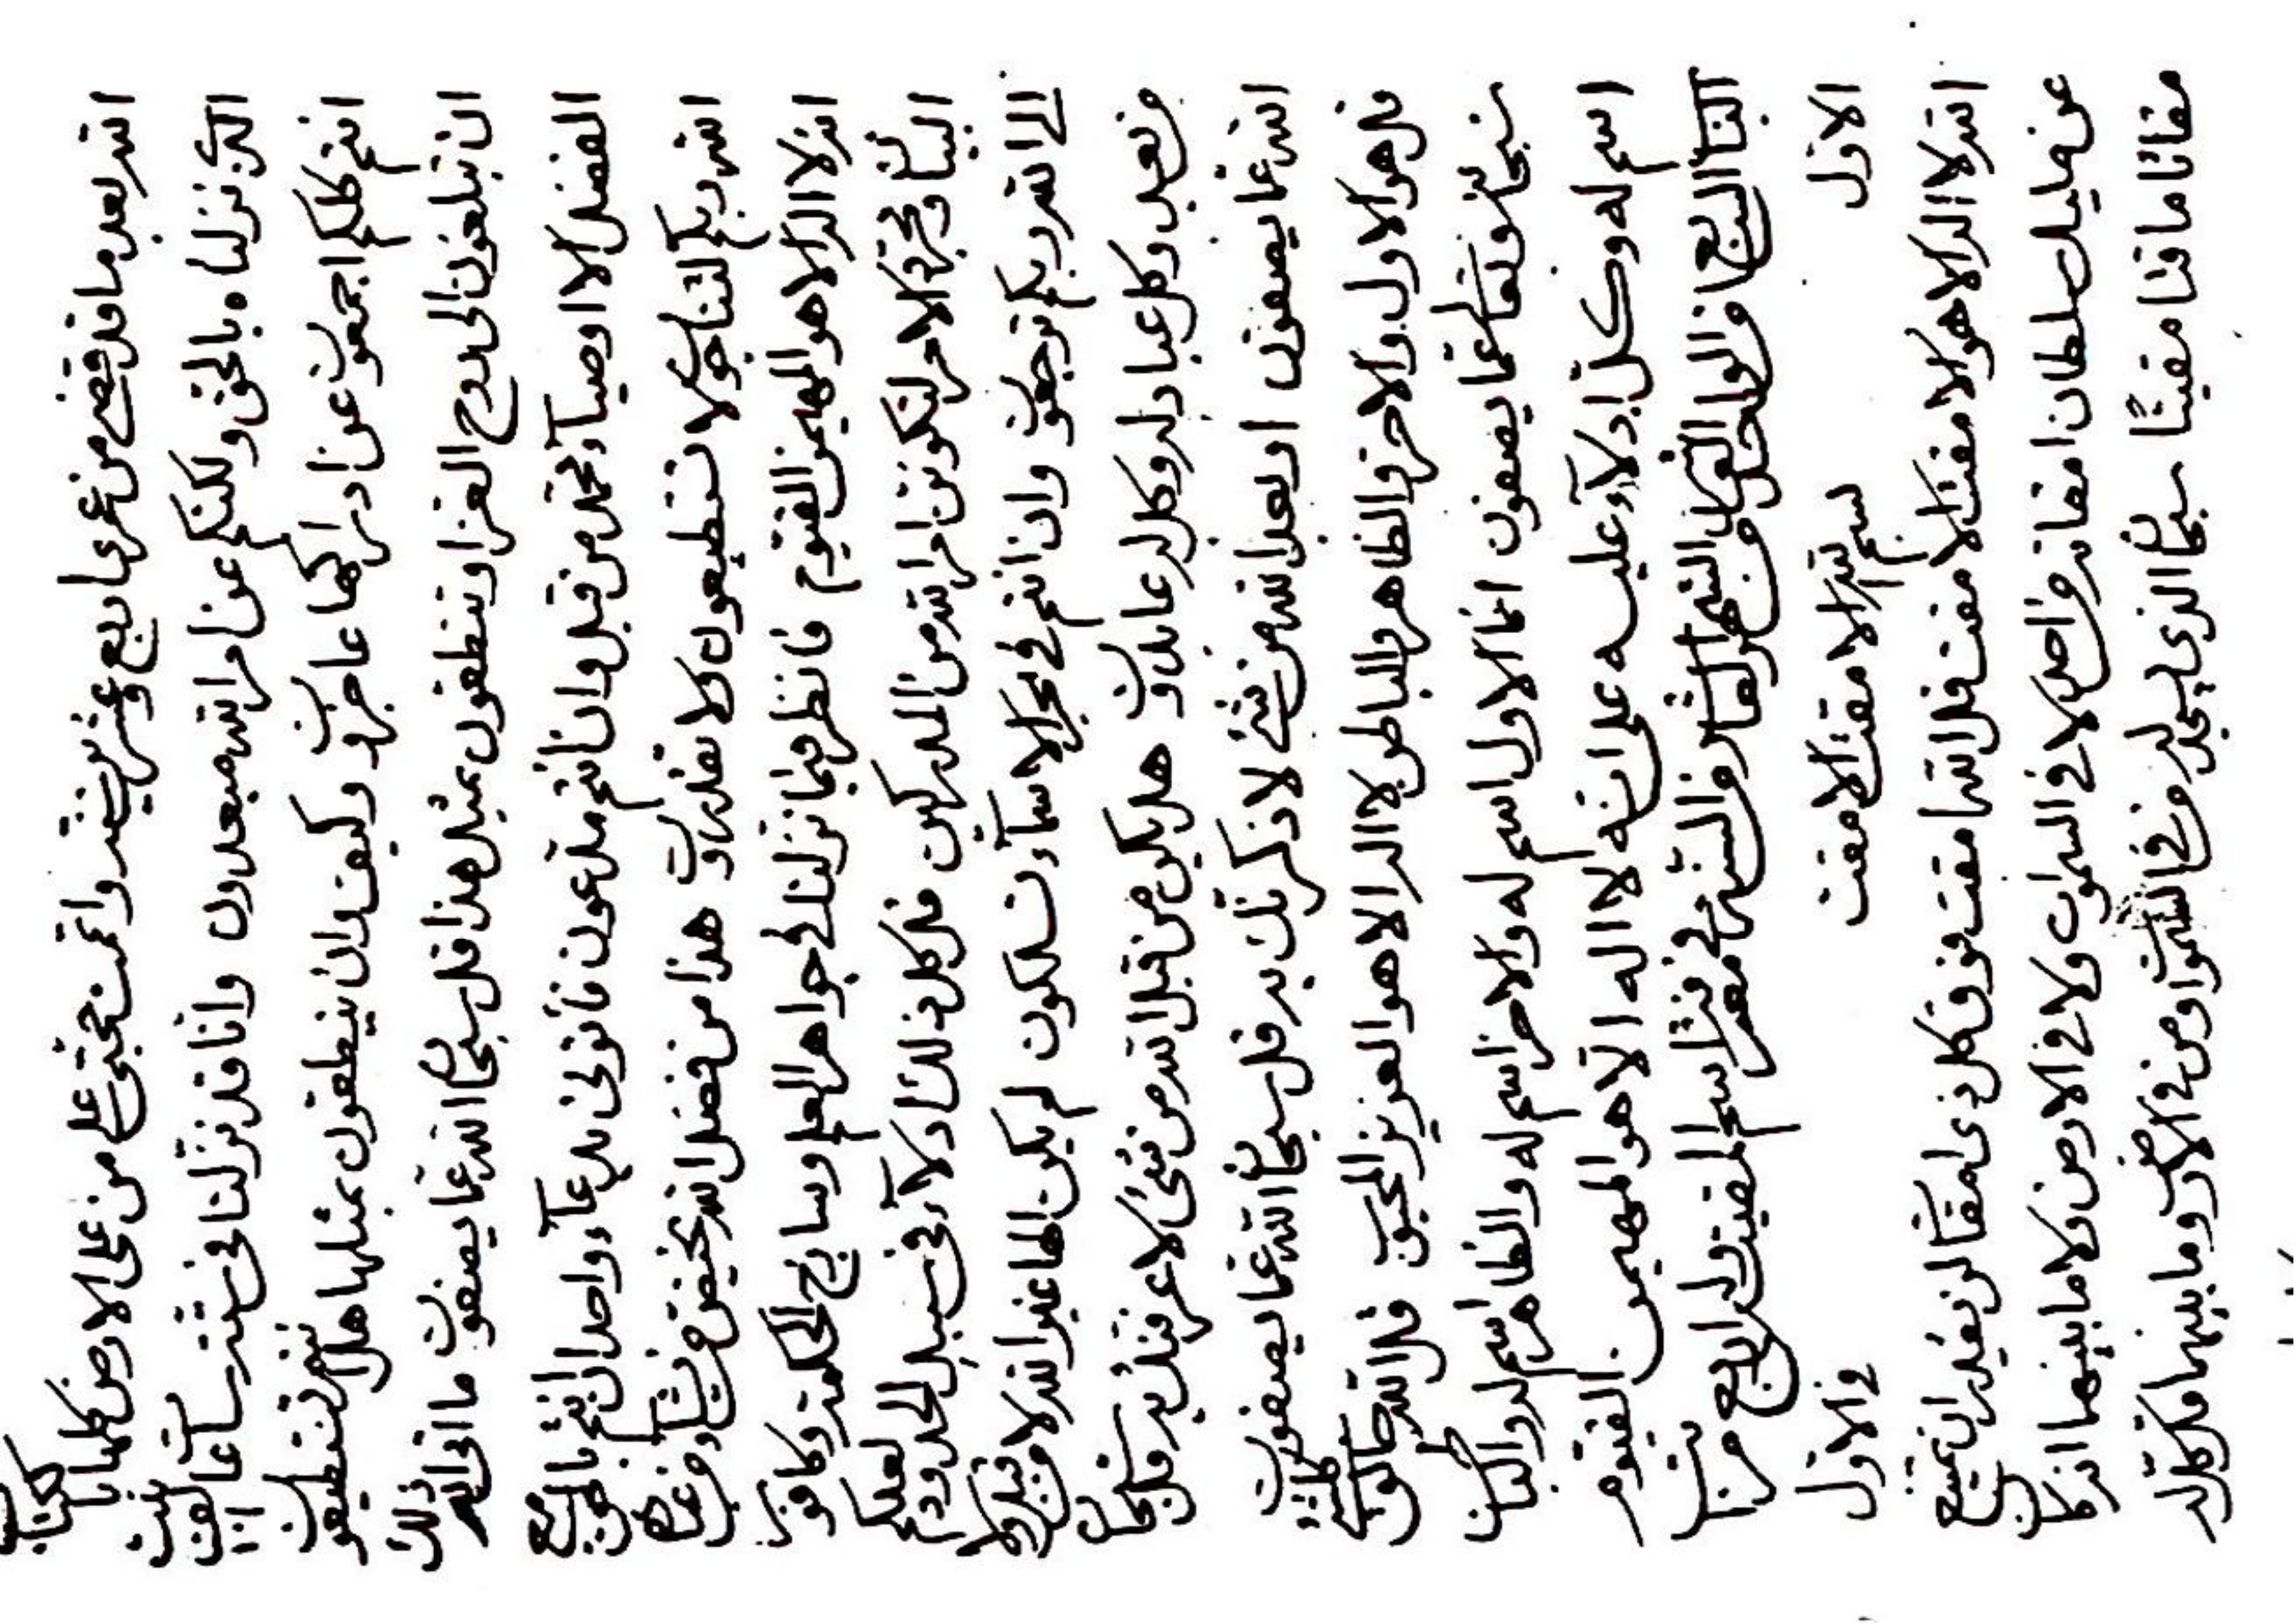 الله بعد ما قد قضى من عمرها اربع وعشرين سنة واتمت حجتى على من على الارض كلها
الذى نزلناه بالحق ولكنكم عن امر الله مبعدون وانا قد نزلنا فى ستة ساعات الف بيت
انتم كلكم اجمعون عن ادراكها عاجزون وكيف وان ينطقون بمثلها هل انتم تستطيعون
ان تبلغون الى روح وتنطقون بمثل هذا قل سبحان الله عما يصفون ما اتى الله ذلك
الفضل الا اوصياء محمد من قبل وان انتم مدعون فأتونى بدعاء واحد ان انتم
الله ربكم لتناجون لا تستطيعون ولا تقدرون هذا من فضل الله يختص من يشاء من عباده
انه لا اله الا هو المهيمن القيوم فانظر فيما نزلنا فى جواهر العلم وسايج الحكمة وكافور
البيان الاحمر لتكونن امر الله من المدركين قل كل ذلك ادلاء فى سبيل الحدود لعلكم
الى الله ربكم ترجعون وان انتم فى بحر الاسماء تسلكون لم يكن الها غير الله لا من قبل ولا
من بعد وكل عباد له وكل له عابدون هل يكون من قبل الله من شئ لاعرفنك به قل سبحان
الله عما يصفون او بعد الله من شئ لاذكرنك به قل سبحان الله عما يصفون
قل هو الاول والاخر والظاهر والباطن لا اله الا هو العزيز المحبوب قل الله
سبحانه وتعالى عما يصفون انما الاول اسم له والاخر اسم له والظاهر اسم له والباطن
اسم له وكل ادلاء عليه على انه لا اله الا هو المهيمن القيوم
الباب السابع والواحد العاشر فى معرفة اسم المقيت وله اربع مراتب
الاول بسم الله الامقت الامقت فى الاول
الله لا اله الا هو الامقت الامقت قل الله امقت فوق كل ذى امقات لن يقدر ان يمتنع
عن مليك سلطان امقاته من احد لا فى السموات ولا فى الارض ولا ما بينهما انه كان
مقاتا ماقتا مقيتا سبحان الذى يسجد له من فى السموات ومن فى الارض وما بينهما قل كل له